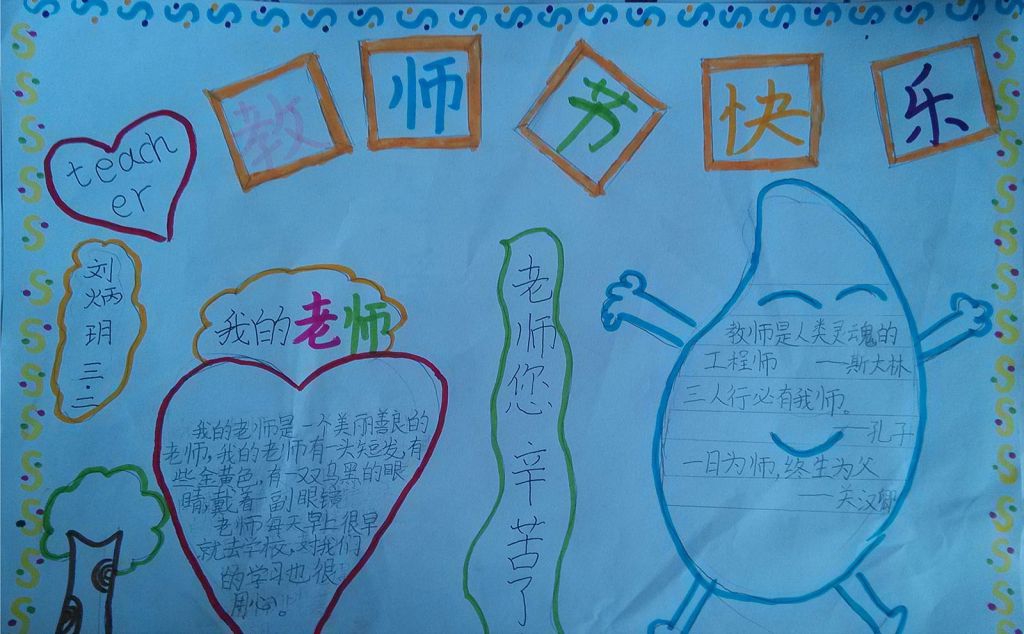 教师节快乐
teach
er
刘炳玥 三.二
我的老师
我的老师是一个美丽善良的
老师,我的老师有一头短发,有
些金黄色,有一双乌黑的眼
睛,戴着一副眼镜
老师每天早上很早
就去学校,对我们
的学习也很
用心。
老师您辛苦了
教师是人类灵魂的
工程师 ——斯大林
三人行必有我师。
——孔子
一日为师,终生为父
——关汉卿